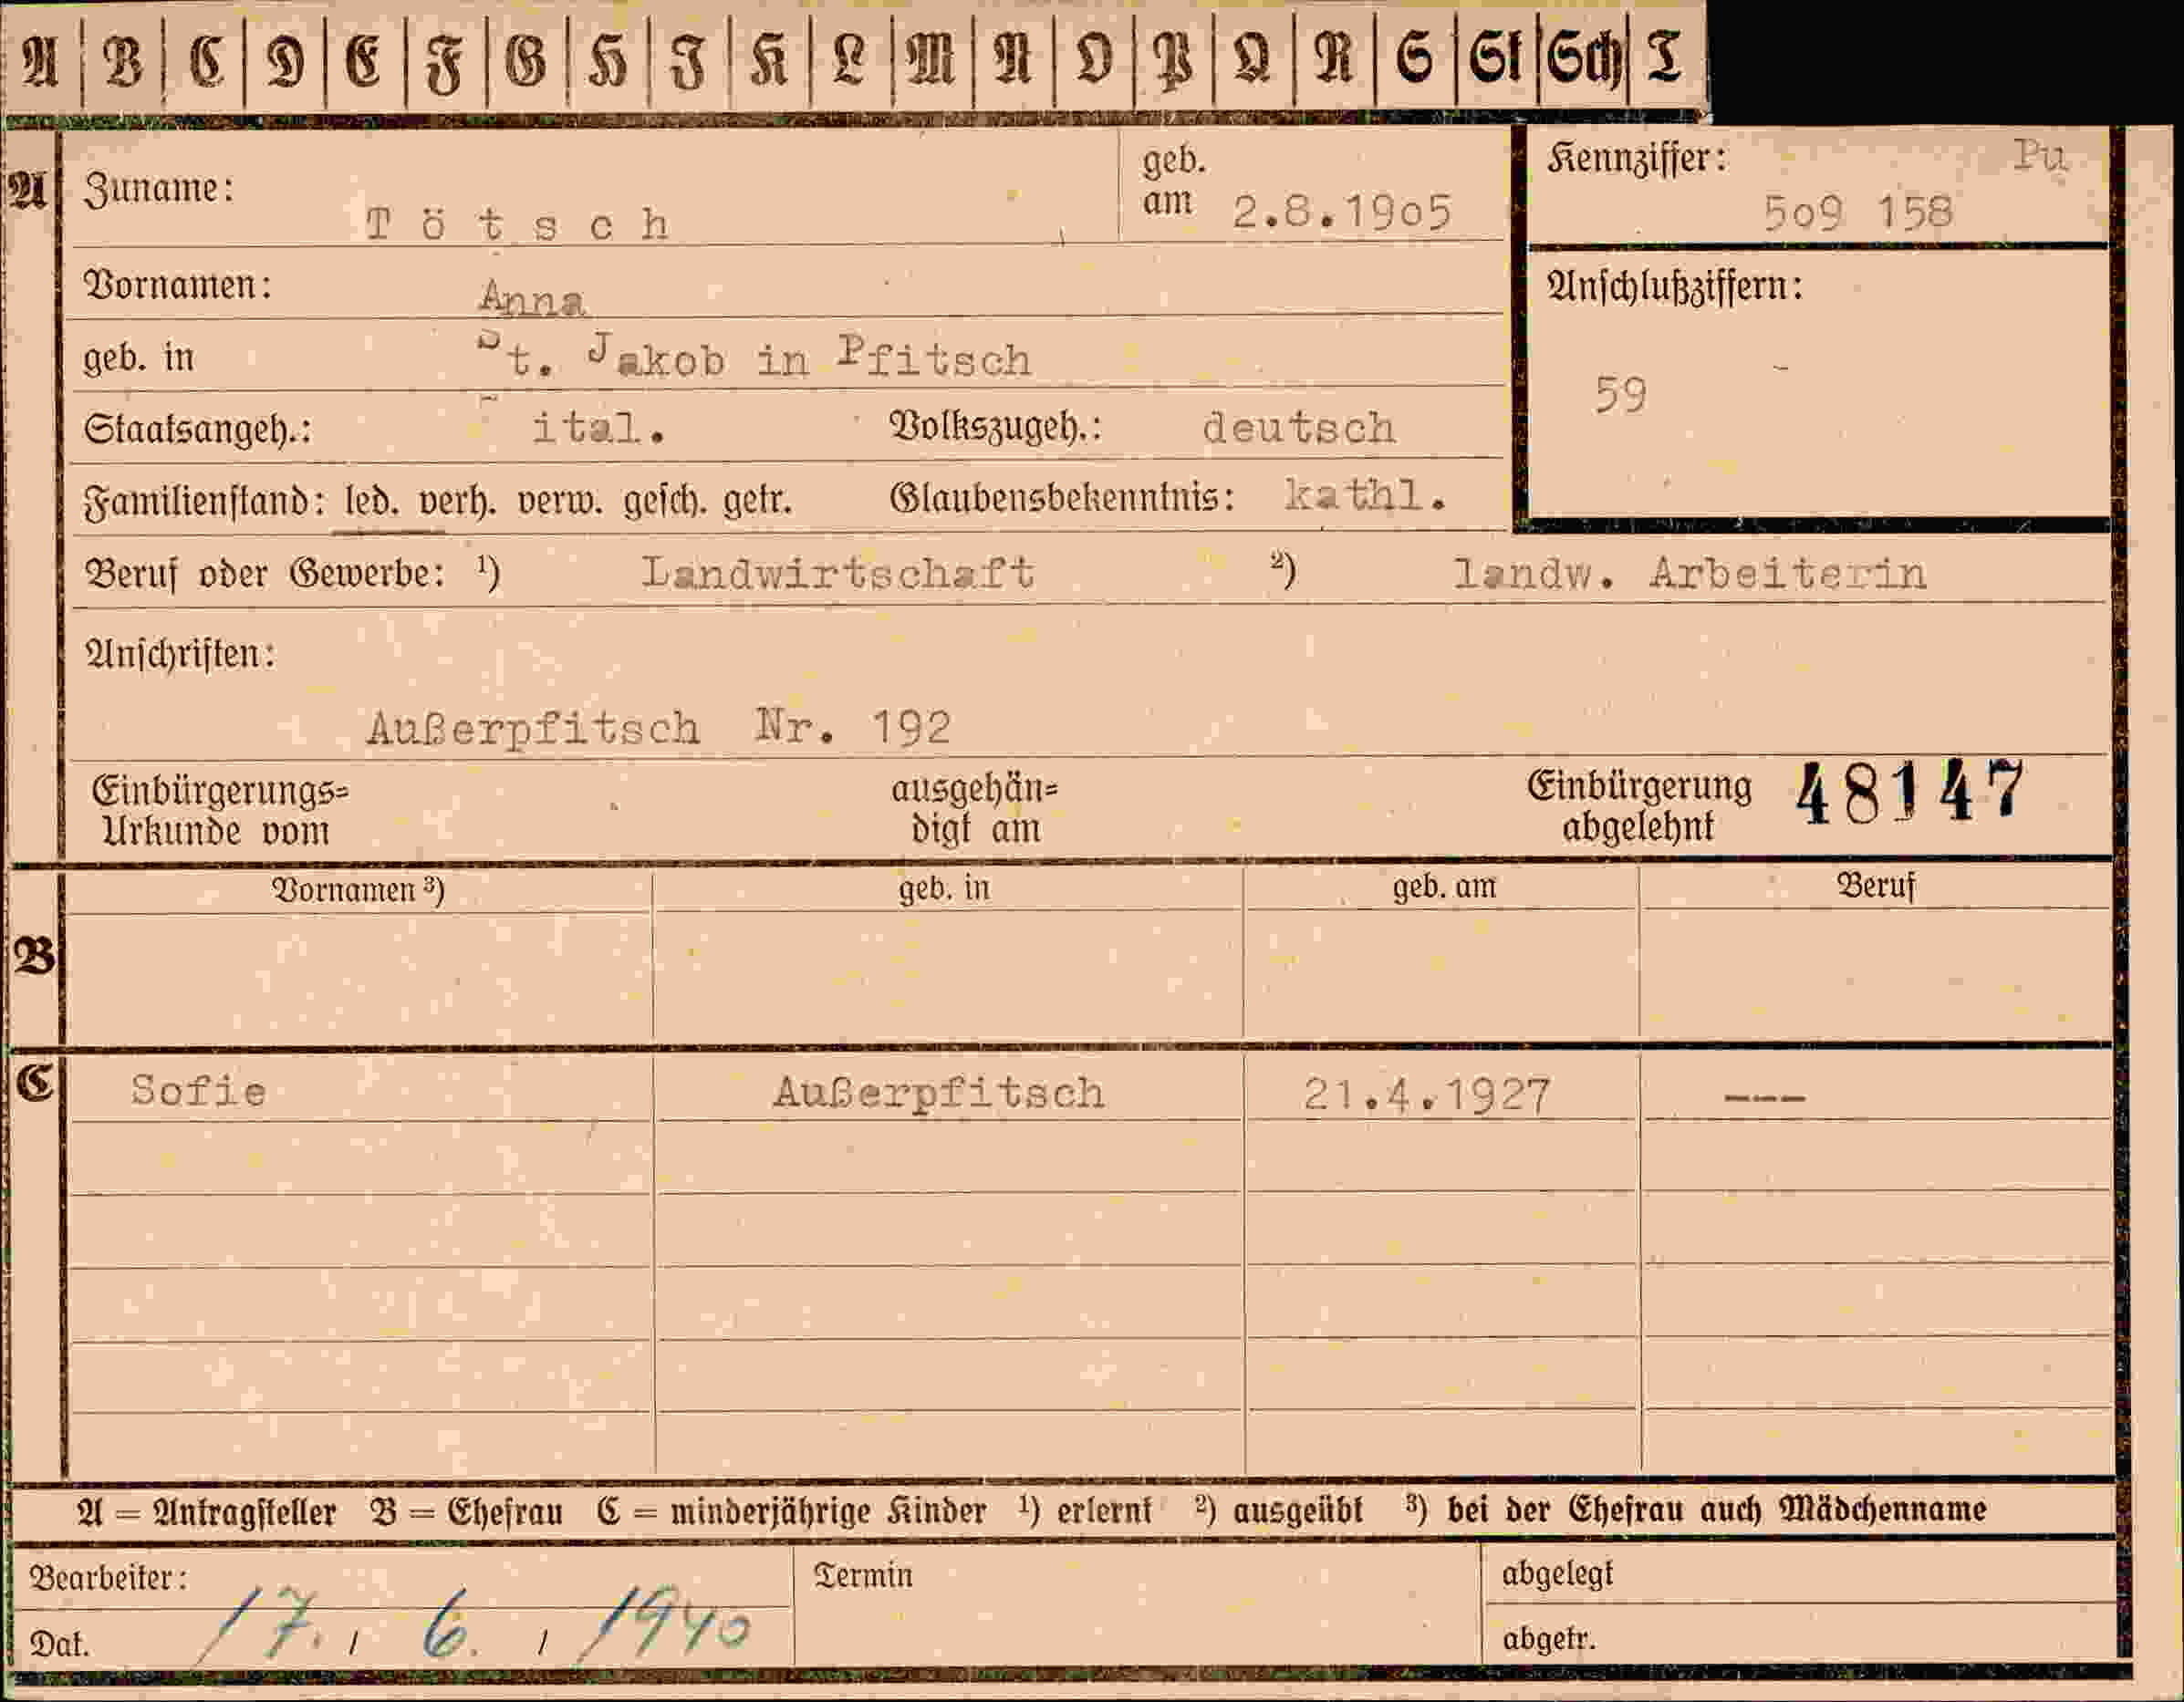 A B C D E F G H I K L M N O P Q R S St Sch T
A
Zuname: Tötsch
geb. am 2.8.19o5
Kennziffer: Pu
5o9 158
Vornamen: Anna
Anschlußziffern:
59
geb. in St. Jakob in Pfitsch
Staatsangeh.: ital. Volkszugeh.: deutsch
Familienstand: led. verh. verw. gesch. getr. Glaubensbekenntnis: kathl.
Beruf oder Gewerbe: ¹) Landwirtschaft ²) landw. Arbeiterin
Anschriften:
Außerpfitsch Nr. 192
Einbürgerungs= ausgehän= Einbürgerung 48147
Urkunde vom digt am abgelehnt
Vornamen ³) geb. in geb. am Beruf
B
C Sofie Außerpfitsch 21.4.1927 ---
A = Antragsteller B = Ehefrau C = minderjährige Kinder ¹) erlernt ²) ausgeübt ³) bei der Ehefrau auch Mädchenname
Bearbeiter: Termin abgelegt
Dat. 17. / 6. / 1940 abgetr.